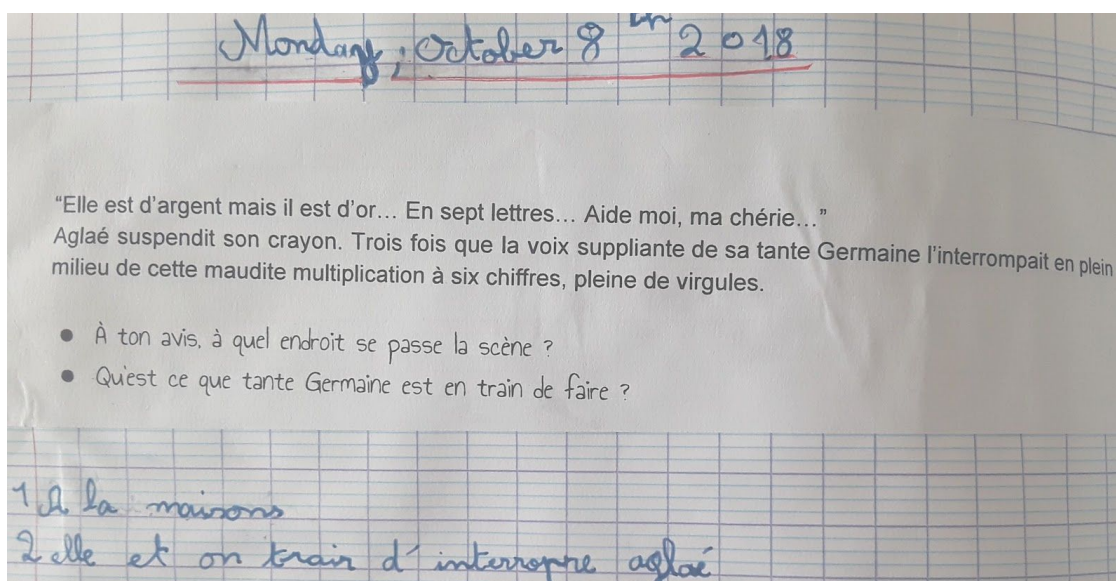 Monday, October 8 th 2018
“Elle est d’argent mais il est d’or... En sept lettres... Aide moi, ma chérie...”
Aglaé suspendit son crayon. Trois fois que la voix suppliante de sa tante Germaine l’interrompait en plein
milieu de cette maudite multiplication à six chiffres, pleine de virgules.
● À ton avis, à quel endroit se passe la scène ?
● Qu'est ce que tante Germaine est en train de faire ?
1 A la maisons
2 elle et on train d'interropre aglaé